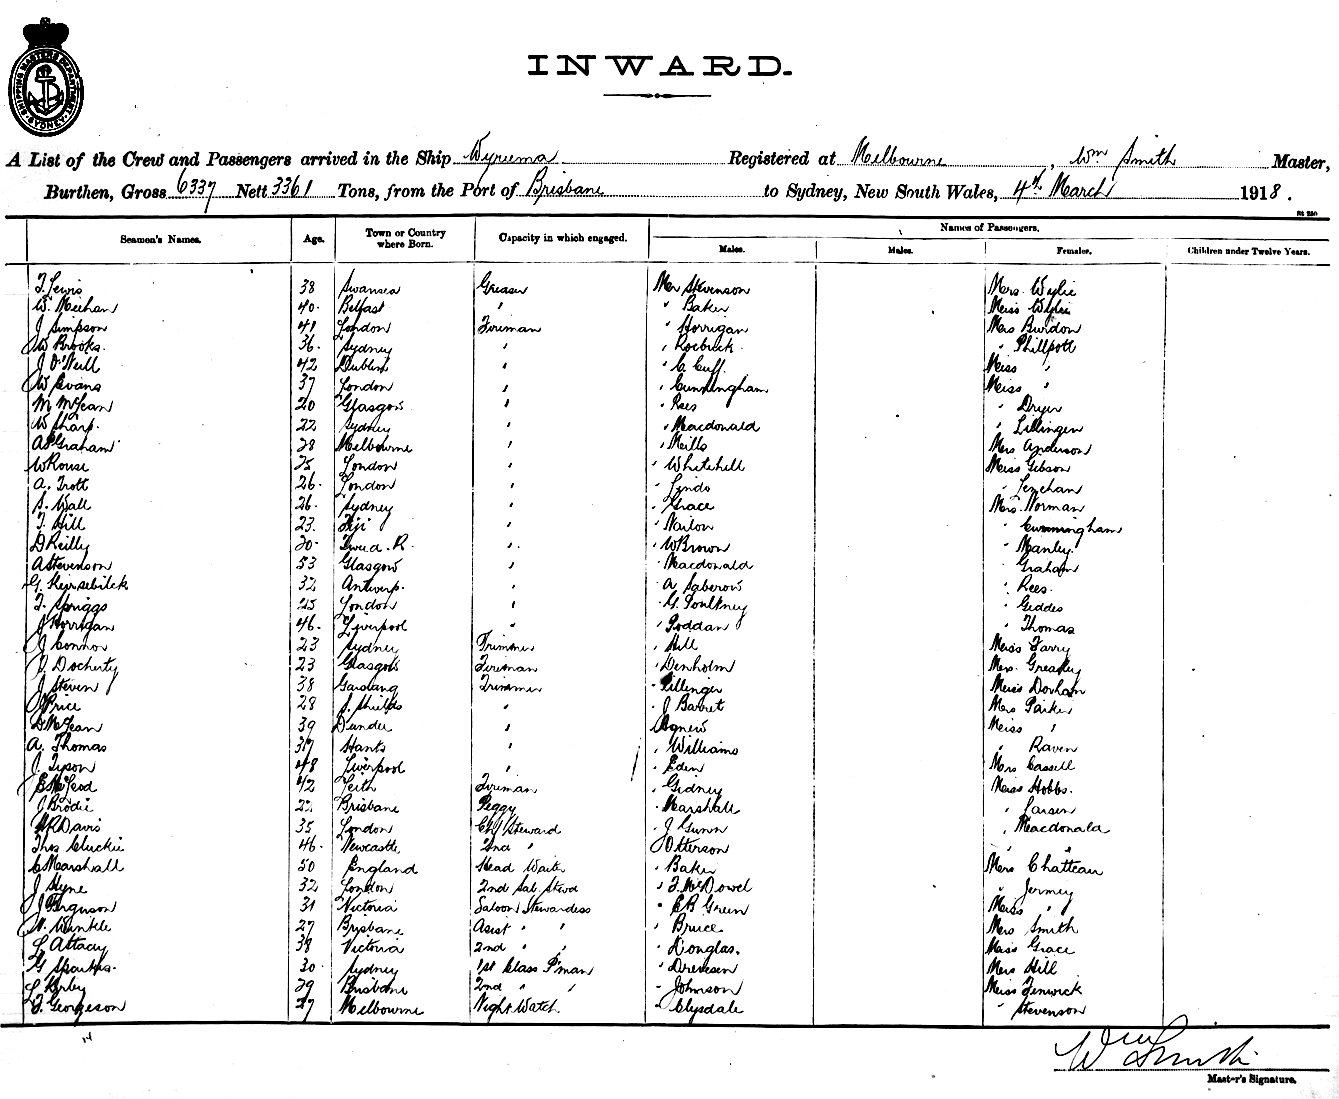 SHIPPING MASTERS DEPARTMENT SYDNEY
INWARD.
A List of the Crew and Passengers arrived in the Ship Wyreema Registered at Melbourne, Wm Smith Master,
Burthen, Gross 6337 Nett 3361 Tons, from the Port of Brisbane to Sydney, New South Wales, 4th March 1918.
Seamen's Names. Age. Town or Country where Born. Capacity in which engaged. Names of Passengers.
Males. Males. Females. Children under Twelve Years.
T. Lewis 38 Swansea Greaser Mr Stevenson Mrs. Wylie
W. Meehan 40 Belfast " " Baker Miss Wylie
J Simpson 41 London Fireman " Horrigan Mrs Burdon
W Brooks 36 Sydney " " Roebuck " Phillpott
J O'Neill 42 Dublin " " C. Cuff Miss "
W Evans 37 London " " Cunningham Miss "
M McLean 20 Glasgow " " Rees " Dryer
W Sharp 22 Sydney " " Macdonald " Lillingen
A Graham 28 Melbourne " " Mills Mrs Anderson
W Rouse 25 London " " Whitehill Miss Gibson
A. Trott 26 London " " Lindo " Lenehan
S. Wall 26 Sydney " " Grace Mrs. Norman
T. Hill 23 Fiji " " Nailon " Cunningham
D Reilly 20 Tweed R. " " W Brown " Manley
A Stevenson 53 Glasgow " " Macdonald " Graham
G. 32 Antwerp " " A " Rees
T. Spriggs 25 London " " G. Poulkney " Geddes
J Horrigan 46 Liverpool " " Poddan " Thomas
J Connor 23 Sydney Trimmer " Hill Miss Farry
J Docherty 23 Glasgow Fireman " Denholm Mrs. Greasley
J Steven 38 Garstang Trimmer " Lillinger Miss Dorham
J Price 28 S. Shields " " J Barret Mrs Parker
D McLean 39 Dundee " " Agnew Miss "
A. Thomas 37 Hants " " Williams " Raven
J. Tyson 48 Liverpool " " Eden Mrs Cassell
E McLeod 42 Leith Fireman " Gidney Miss Hobbs
J Brodie 22 Brisbane Peggy " Marshall " Larsen
Davis 35 London Chf Steward " J Gunn " Macdonald
Thos Cluckie 46 Newcastle 2nd " J Otterson " "
C Marshall 50 England Head Waiter " Baker Mrs Chatteau
J Hyne 32 London 2nd Sal. Stwd " J. McDowel " Jermey
J Ferguson 31 Victoria Saloon Stewardess " E B Green Miss "
N. Winkle 27 Brisbane Asist " " " Bruce Mrs Smith
L Attacy 38 Victoria 2nd " " " Douglas. Miss Grace
G Sparkes 30 Sydney 1st Class P'man " Drewsen Mrs Hill
L Kerby 29 Brisbane 2nd " " " Johnson Miss Fenwick
T. Georgeson 27 Melbourne Night Watch " Clysdale " Stevenson
14
Wm Smith
Master's Signature.